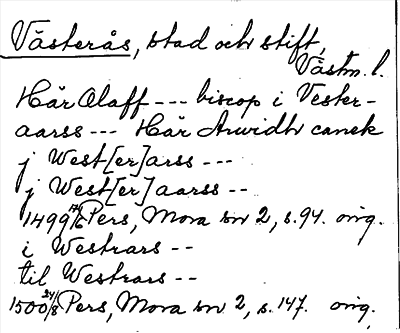 Västerås, stad och stift,
Västm. l.
Här Olaff --- biscop i Vester-
aarss --- Här Arwidh canek
j West[er]arss ---
j West[er]aarss --
1499 17/6 Pers, Mora sn 2, s. 94. orig.
i Westrars --
til Westrars --
1500 24/8 Pers, Mora sn 2, s. 147. orig.